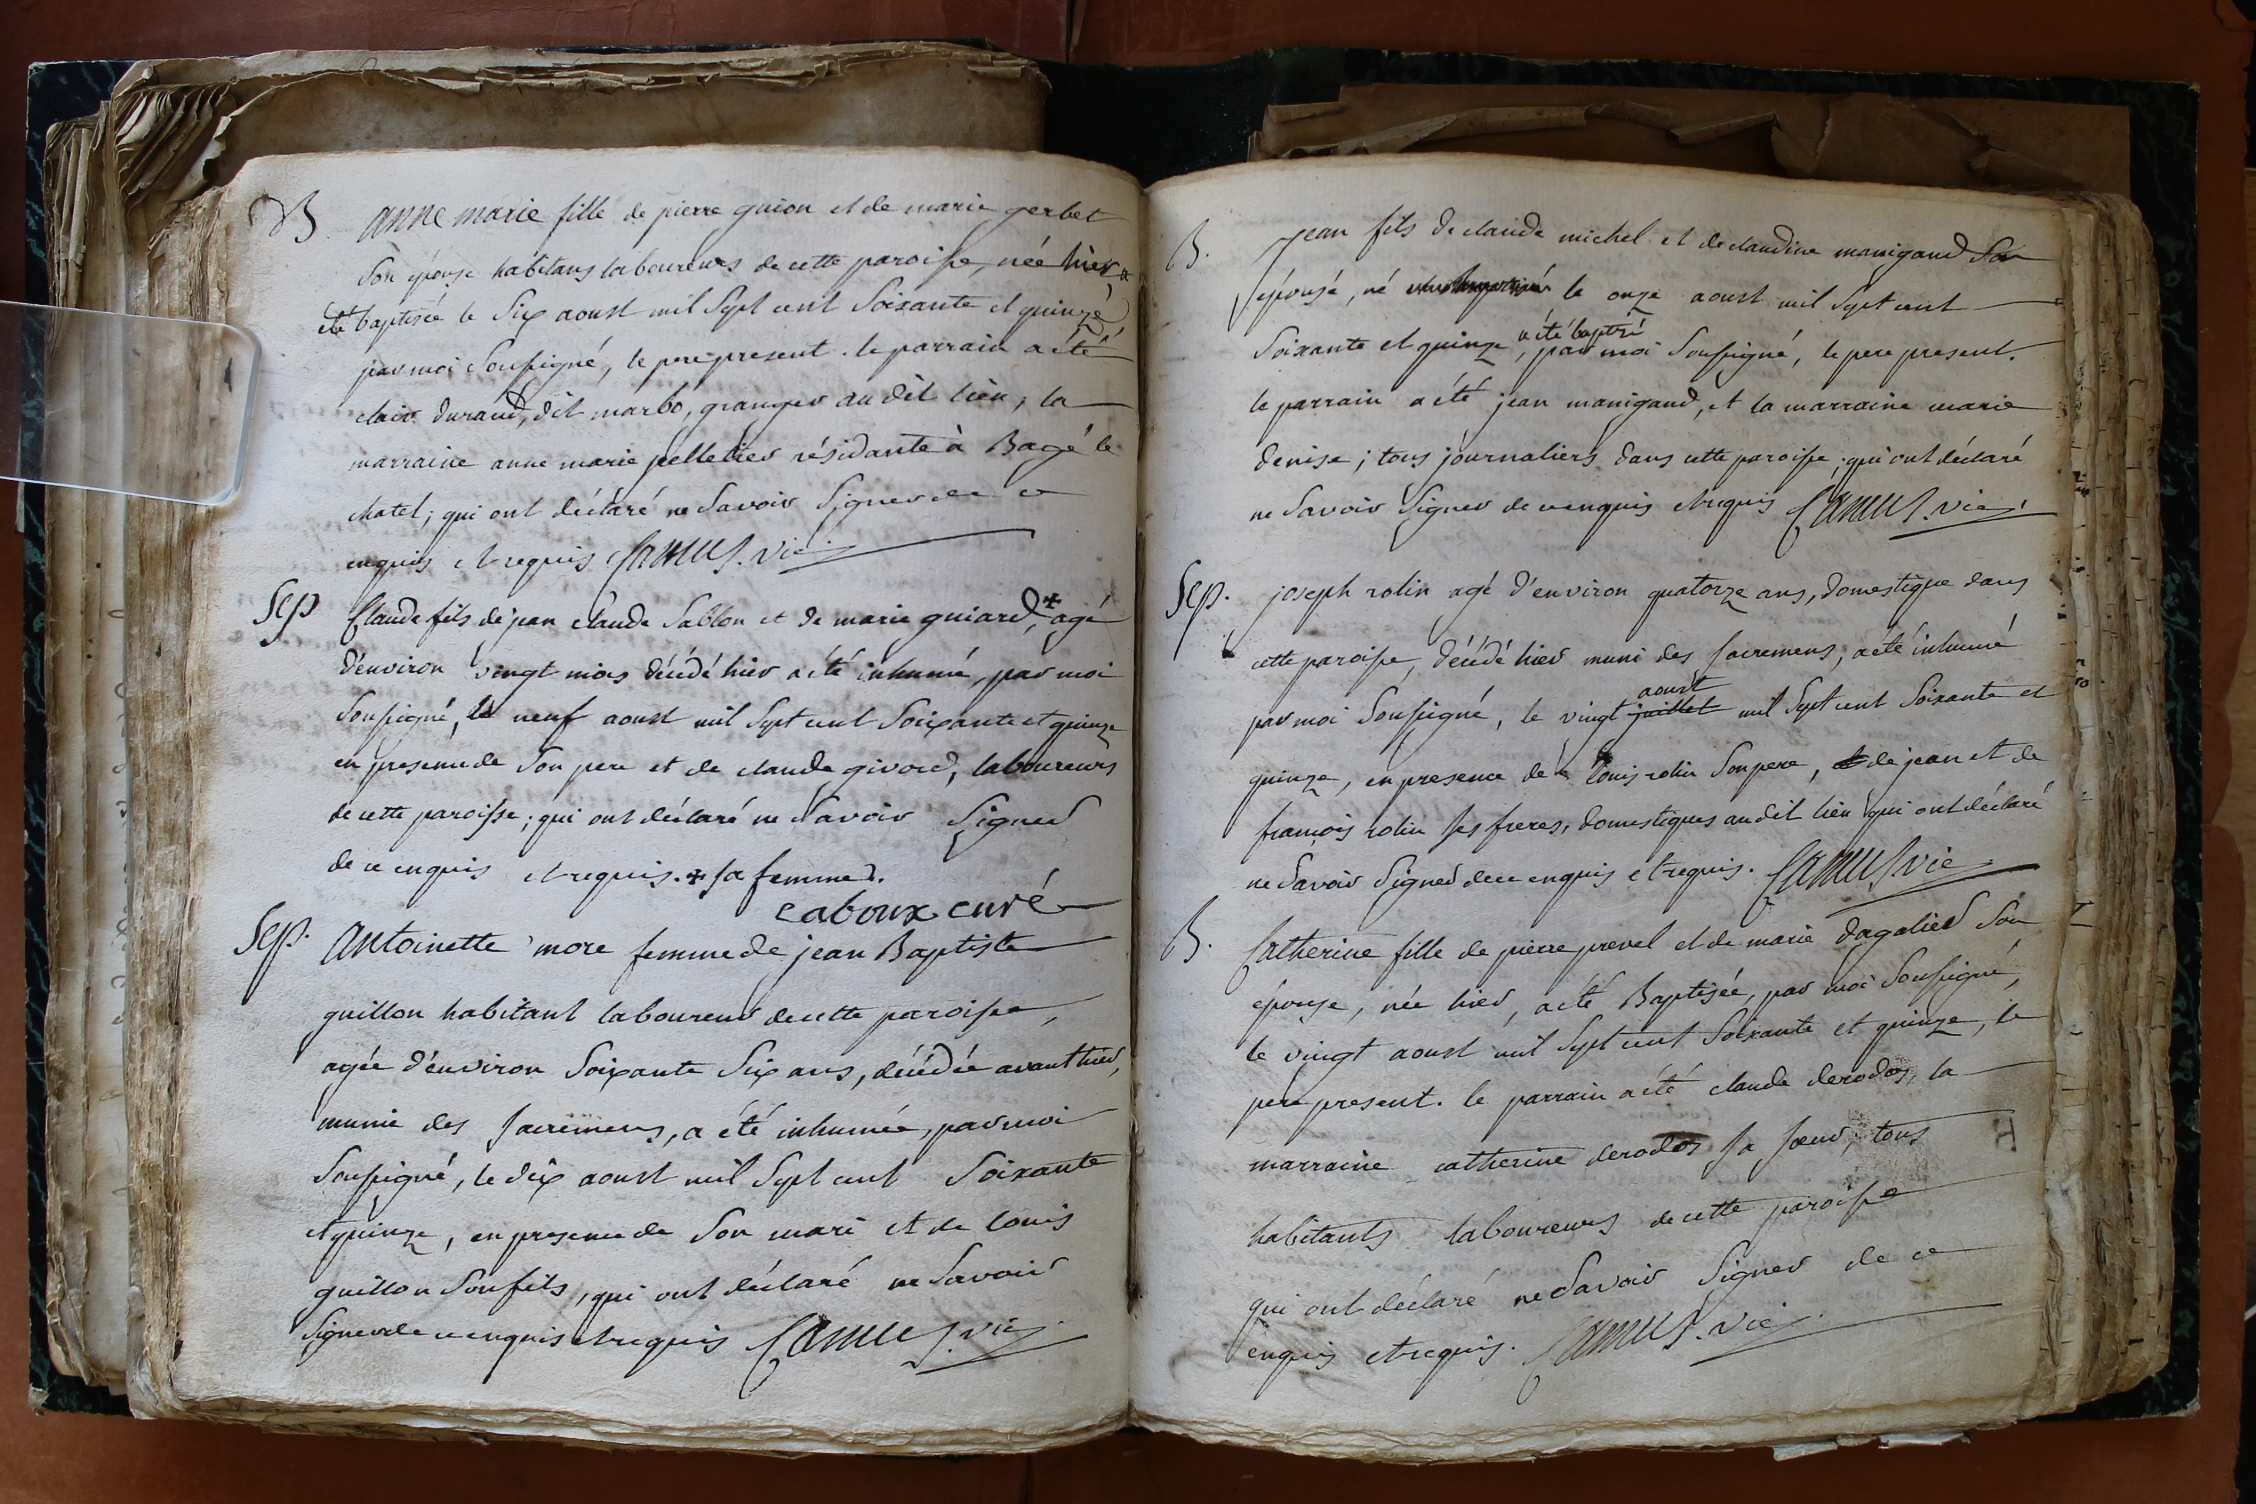 B. anne marie fille de pierre guion et de marie gerbet
son épouse habitans laboureurs de cette paroisse, née hier, a
été baptisée le six aoust mil sept cent soixante et quinze,
par moi soussigné, le pere present. le parrain a été
clair durand, dit marbo, granger au dit lieu, la
marraine anne marie pelletier résidante à Bagé le
chatel; qui ont déclaré ne savoir signer de ce
enquis et requis Camus. vic.
Sep Claude fils de jean claude sablon et de marie guiard, + agé
d'environ vingt mois décédé hier a été inhumé, par moi
soussigné, le neuf aoust mil sept cent soixante et quinze
en presence de son pere et de claude givord, laboureurs
de cette paroisse; qui ont déclaré ne savoir signer
de ce enquis et requis. + sa femme.
Caboux curé
Sep. Antoinette more femme de jean Baptiste
guillon habitant laboureur de cette paroisse,
agée d'environ soixante six ans, décédée avant hier,
munie des sacremens, a été inhumée, par moi
soussigné, le dix aoust mil sept cent soixante
et quinze, en presence de son mari et de louis
guillon son fils, qui ont déclaré ne savoir
signer de ce enquis et requis Camus. vic.
B. Jean fils de claude michel et de claudine manigand son
épouse, né le onze aoust mil sept cent
a été baptisé
soixante et quinze, par moi soussigné, le pere present.
le parrain a été jean manigand, et la marraine marie
denise; tous journaliers dans cette paroisse; qui ont déclaré
ne savoir signer de ce enquis et requis Camus. vic.
Sep. joseph rolin agé d'environ quatorze ans, domestique dans
cette paroisse, décédé hier muni des sacremens, a été inhumé
aoust
par moi soussigné, le vingt juillet mil sept cent soixante et
quinze, en presence de louis rolin son pere, de jean et de
françois rolin ses freres, domestiques au dit lieu qui ont déclaré
ne savoir signer de ce enquis et requis. Camus vic.
B. Catherine fille de pierre prevel et de marie dagalier son
épouse, née hier, a été Baptisée, par moi soussigné,
le vingt aoust mil sept cent soixante et quinze, le
pere present. le parrain a été claude derodos, la
marraine catherine derodos sa sœur, tous
habitants laboureurs de cette paroisse
qui ont déclaré ne savoir signer de ce
enquis et requis. Camus. vic.